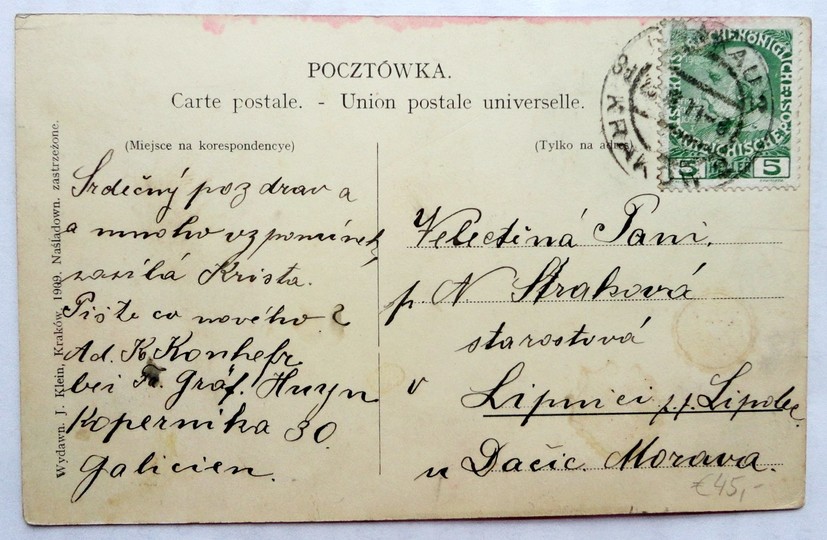 POCZTÓWKA.
Carte postale. - Union postale universelle.
(Miejsce na korespondencye)
(Tylko na adres
Wydawn. J. Klein, Kraków, 1909. Naśladown. zastrzeżone.
Srdečný pozdrav a
a mnoho vzpomínek
zasílá Krista.
Pište co nového?
Ad. K. Konhefr
bei Fr. Gräf. Huyn
Kopernika 30.
Galicien.
Velectěná Paní,
p. N Straková
starostová
v Lipnici p. p. Lipolec
u Dačic. Morava.
€45,-
KRAKAU
5 5